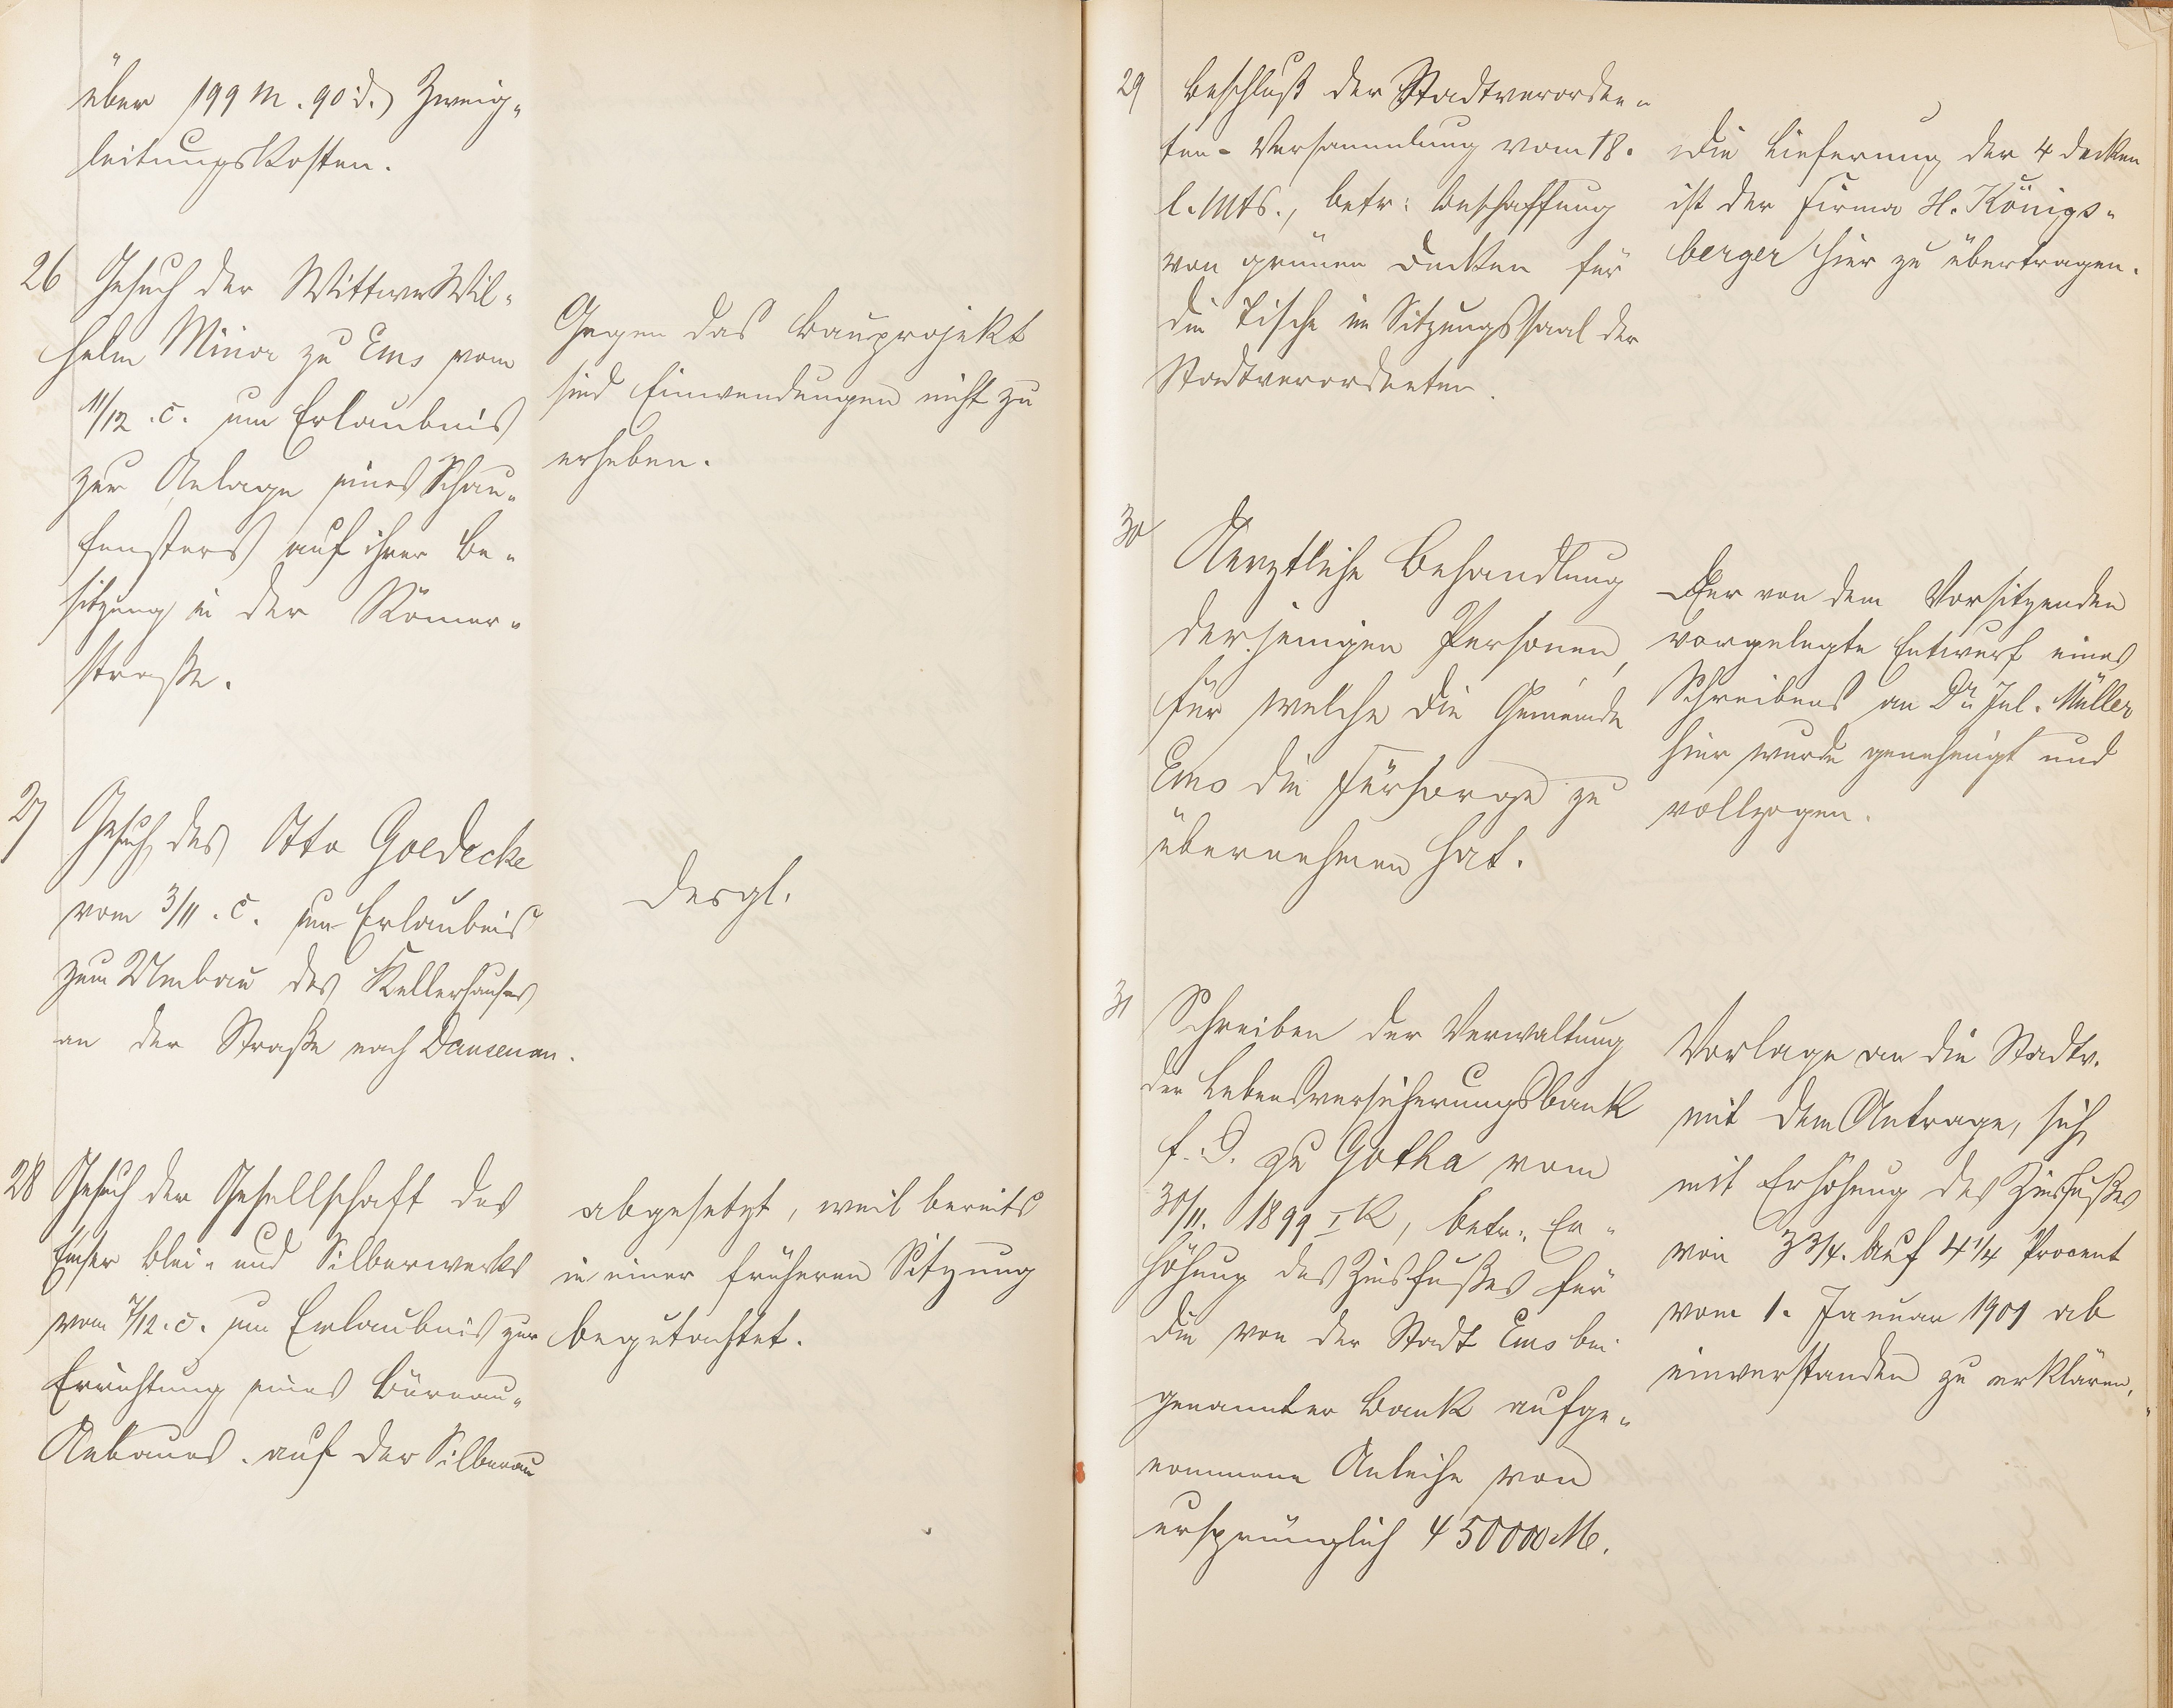 über 199 M. 90 d. Zweig-
leitungskosten.
26 Gesuch der Wittwe Wil-
helm Minor zu Ems vom
11/12. c. um Erlaubnis
zur Anlage eines Schau-
fensters auf ihrer Be-
sitzung in der Römer-
straße.
Gegen das Bauprojekt
sind Einwendungen nicht zu
erheben.
27 Gesuch des Otto Goedecke
vom 3/11. c. um Erlaubnis
zum Umbau des Kellerhauses
an der Straße nach Dausenau.
desgl.
28 Gesuch der Gesellschaft des
Emser Blei- und Silberwerks
vom 7/12. c. um Erlaubnis zur
Errichtung eines Büreau-
Anbaues auf der Silberau
abgesetzt, weil bereits
in einer früheren Sitzung
begutachtet.
29 Beschluß der Stadtverordne-
ten-Versammlung vom 18.
l. Mts., betr: Beschaffung
von grünen Decken für
die Tische im Sitzungssaal der
Stadtverordneten.
Die Lieferung der 4 Decken
ist der Firma H. Königs-
berger hier zu übertragen.
30 Aerztliche Behandlung
derjenigen Personen,
für welche die Gemeinde
Ems die Fürsorge zu
übernehmen hat.
Der von dem Vorsitzenden
vorgelegte Entwurf eines
Schreibens an Dr. Jul. Müller
hier wurde genehmigt und
vollzogen.
31 Schreiben der Verwaltung
der Lebensversicherungsbank
f. D. zu Gotha vom
30/11. 1899 I K, betr: Er-
höhung des Zinsfußes für
die von der Stadt Ems bei
genannter Bank aufge-
nommene Anleihe von
ursprünglich 450000 M.
Vorlage an die Stadtv.
mit dem Antrage, sich
mit Erhöhung des Zinsfußes
von 3 3/4. auf 4 1/4 Procent
vom 1. Januar 1901 ab
einverstanden zu erklären.